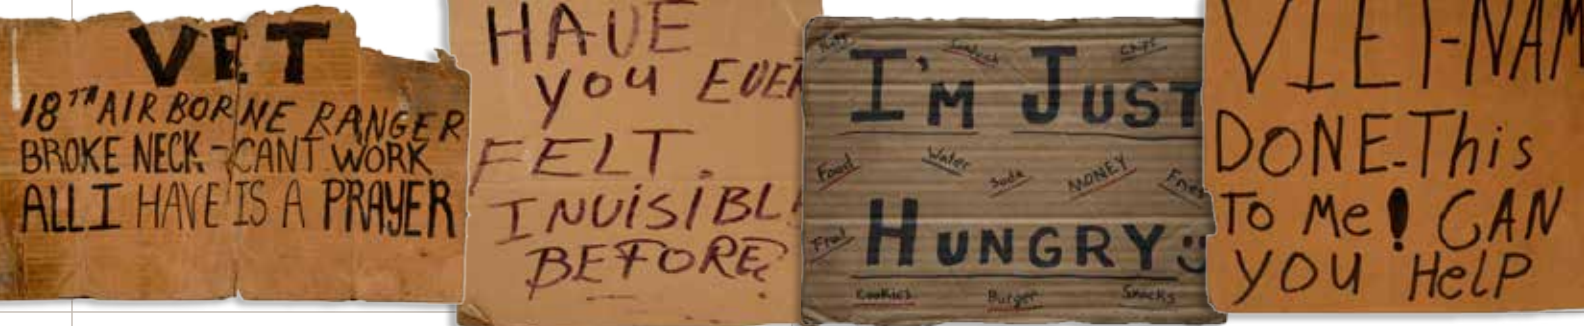 VET
18TH AIRBORNE RANGER
BROKE NECK-CANT WORK
ALL I HAVE IS A PRAYER
HAVE
YOU EVER
FELT
INVISIBL
BEFORE?
Sandwich
Chips
I'M JUST
Food
Water
Soda
MONEY
Fries
Fruit
HUNGRY
Cookies
Burger
Snacks
VIET-NAM
DONE-This
To Me! CAN
YOU HELP